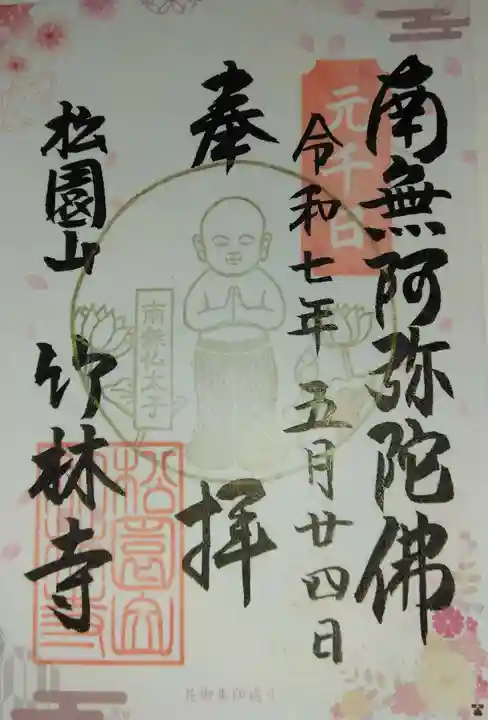 南無阿弥陀佛
元千日
令和七年五月廿四日
奉拝
南無佛太子
松園山
竹林寺
松園山